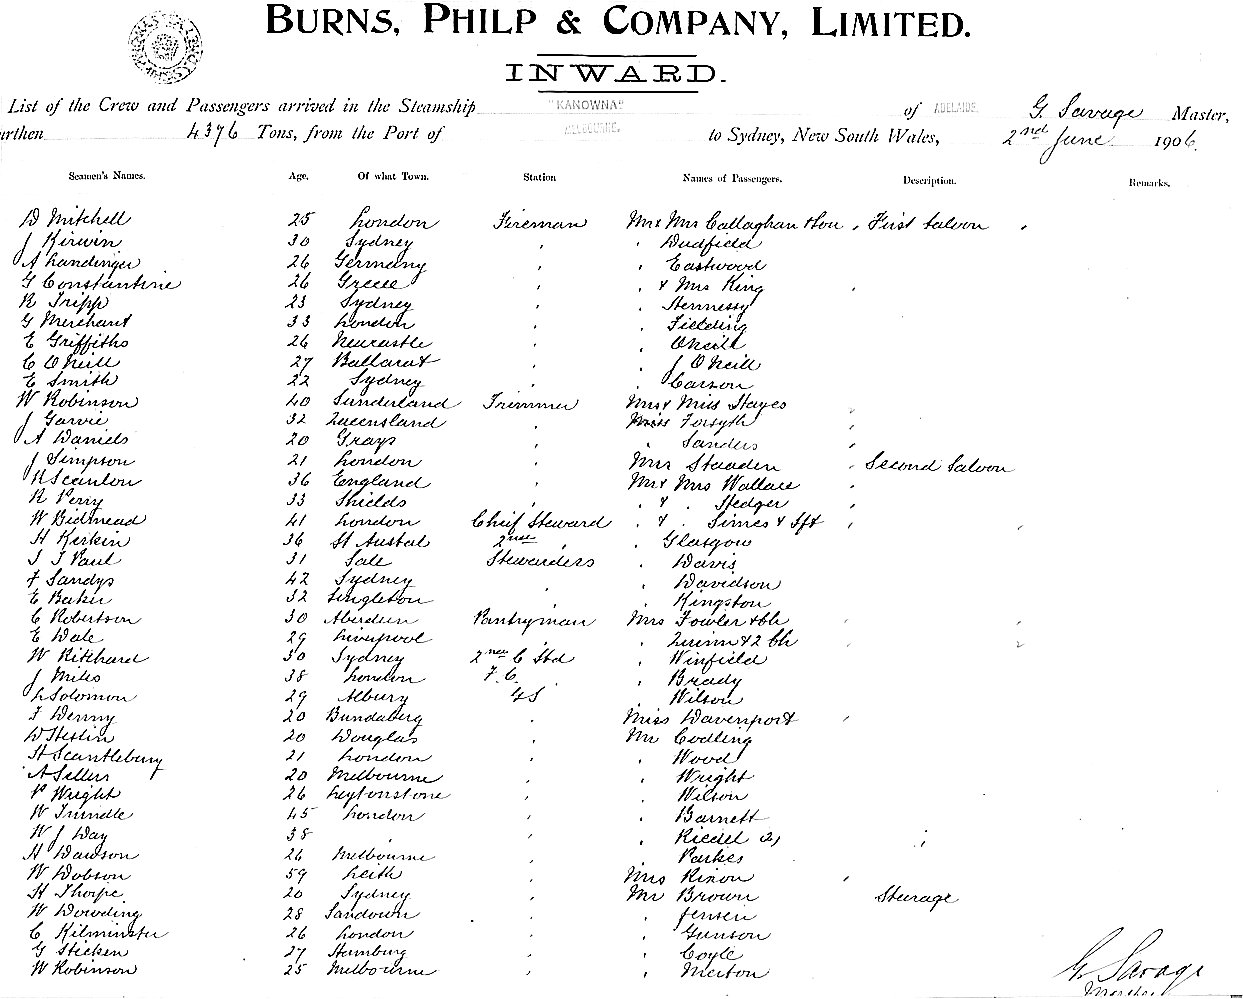 BURNS, PHILP & COMPANY, LIMITED.
INWARD.
List of the Crew and Passengers arrived in the Steamship "KANOWNA" of ADELAIDE. G. Savage Master,
urthen 4376 Tons, from the Port of MELBOURNE. to Sydney, New South Wales, 2nd June 1906.
Seamen's Names. Age. Of what Town. Station Names of Passengers. Description. Remarks.
D Mitchell 25 London Fireman Mr & Mrs Callaghan & Son , First Saloon ,
J Kirwin 30 Sydney , , Dudfield
A Landinger 26 Germany , , Eastwood
G Constantine 26 Greece , , & Mrs King ,
R Tripp 23 Sydney , , Hennessy
G Merchant 33 London , , Fielding
E Griffiths 26 Newcastle , , ONeill
C ONeill 27 Ballarat , , J ONeill
E Smith 22 Sydney , , Carson
W Robinson 40 Sunderland Trimmer Mrs & Miss Hayes ,
J Garvie 32 Queensland , Miss Forsyth ,
A Daniels 20 Grays , , Sanders ,
J Simpson 21 London , Mrs Staaden , Second Saloon
R Scanlon 36 England , Mr & Mrs Wallace ,
R Perry 33 Shields , , & , Hedger ,
W Bidmead 41 London Chief Steward , & , Simes & Inft , ,
H Kerkin 36 St Austal 2nd , , Glasgow
J J Paul 31 Sale Stewardess , Davis
F Sandys 42 Sydney , , Davidson
E Baker 32 Singleton , , Kingston
C Robertson 30 Aberdeen Pantryman Mrs Fowler & Ch , ,
E Dale 29 Liverpool , , Quinn & 2 Ch , ,
W Ritchard 30 Sydney 2nd C Std , Winfield
J Miles 38 London F.C. , Brady
L Solomon 29 Albury GS , Wilson
F Denny 20 Bundaberg , Miss Davenport ,
D Heslin 20 Douglas , Mr Codling
H Scantlebury 21 London , , Wood
A Sellers 20 Melbourne , , Wright
P Wright 26 Leytonstone , , Wilson
W Trindle 45 London , , Barnett
W J Day 38 , , , Riedel (2) ,
H Dawson 26 Melbourne , , Parkes
W Dobson 59 Leith , Mrs Rixon ,
H Thorpe 20 Sydney , Mr Brown Steerage
W Dowding 28 Sandown , , Jensen
C Kilminster 26 London , , Gunson
G Sticken 27 Hamburg , , Coyle
W Robinson 25 Melbourne , , Merton
G. Savage
Master